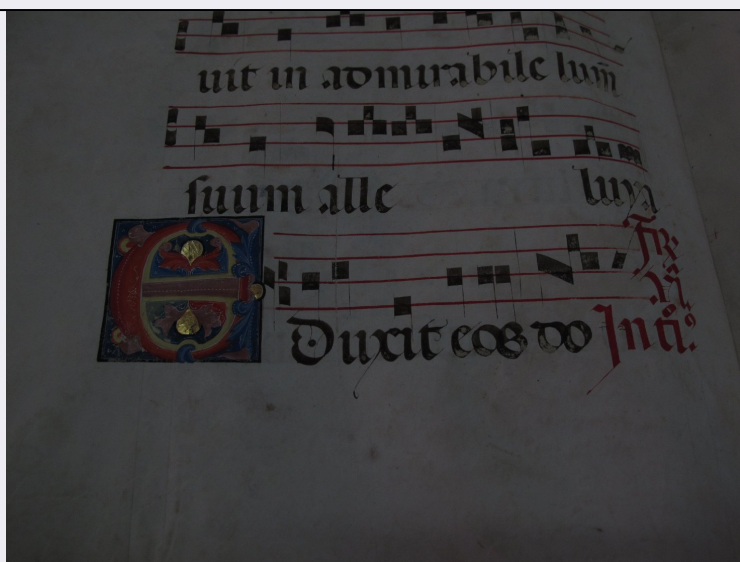 uit in admirabile lum̃
suum alle luya
E Duxit eos do
Fr̃ Vi
Intᵒi: